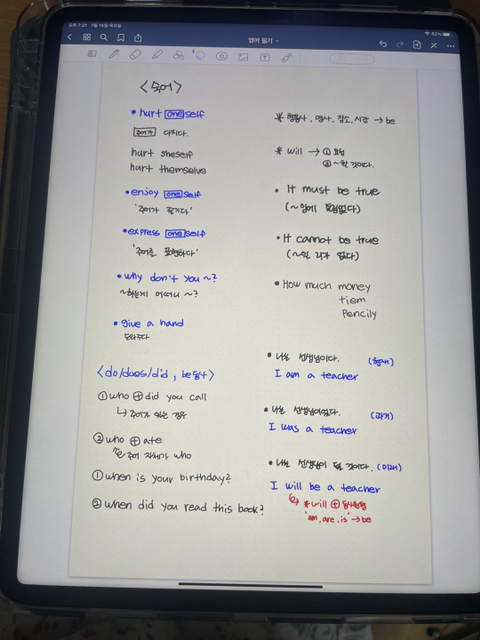 오후 7:21 7월 14일 목요일
82%
영어 필기
<숙어>
• hurt oneself
주어가 다치다.
hurt sheself
hurt themselve
• enjoy oneself
'주어가 즐기다'
• express oneself
'주어를 표현하다'
• why don't you ~?
~하는게 어떠니 ~?
• give a hand
도와주다
<do/does/did, be동사>
① who ⊕ did you call
↳ 주어가 있는 경우
② who ⊕ ate
↳ 주어 자체가 who
① when is your birthday?
② when did you read this book?
* 형용사, 명사, 장소, 시간 → be
* will → ①
② ~할 것이다.
• It must be true
(~임에 틀림없다)
• It cannot be true
(~일 리가 없다)
• How much money
tiem
Pencily
• 나는 선생님이다. (현재)
I am a teacher
• 나는 선생님이었다. (과거)
I was a teacher
• 나는 선생님이 될 것이다. (미래)
I will be a teacher
↳ * will ⊕ 동사원형
'am, are, is' → be